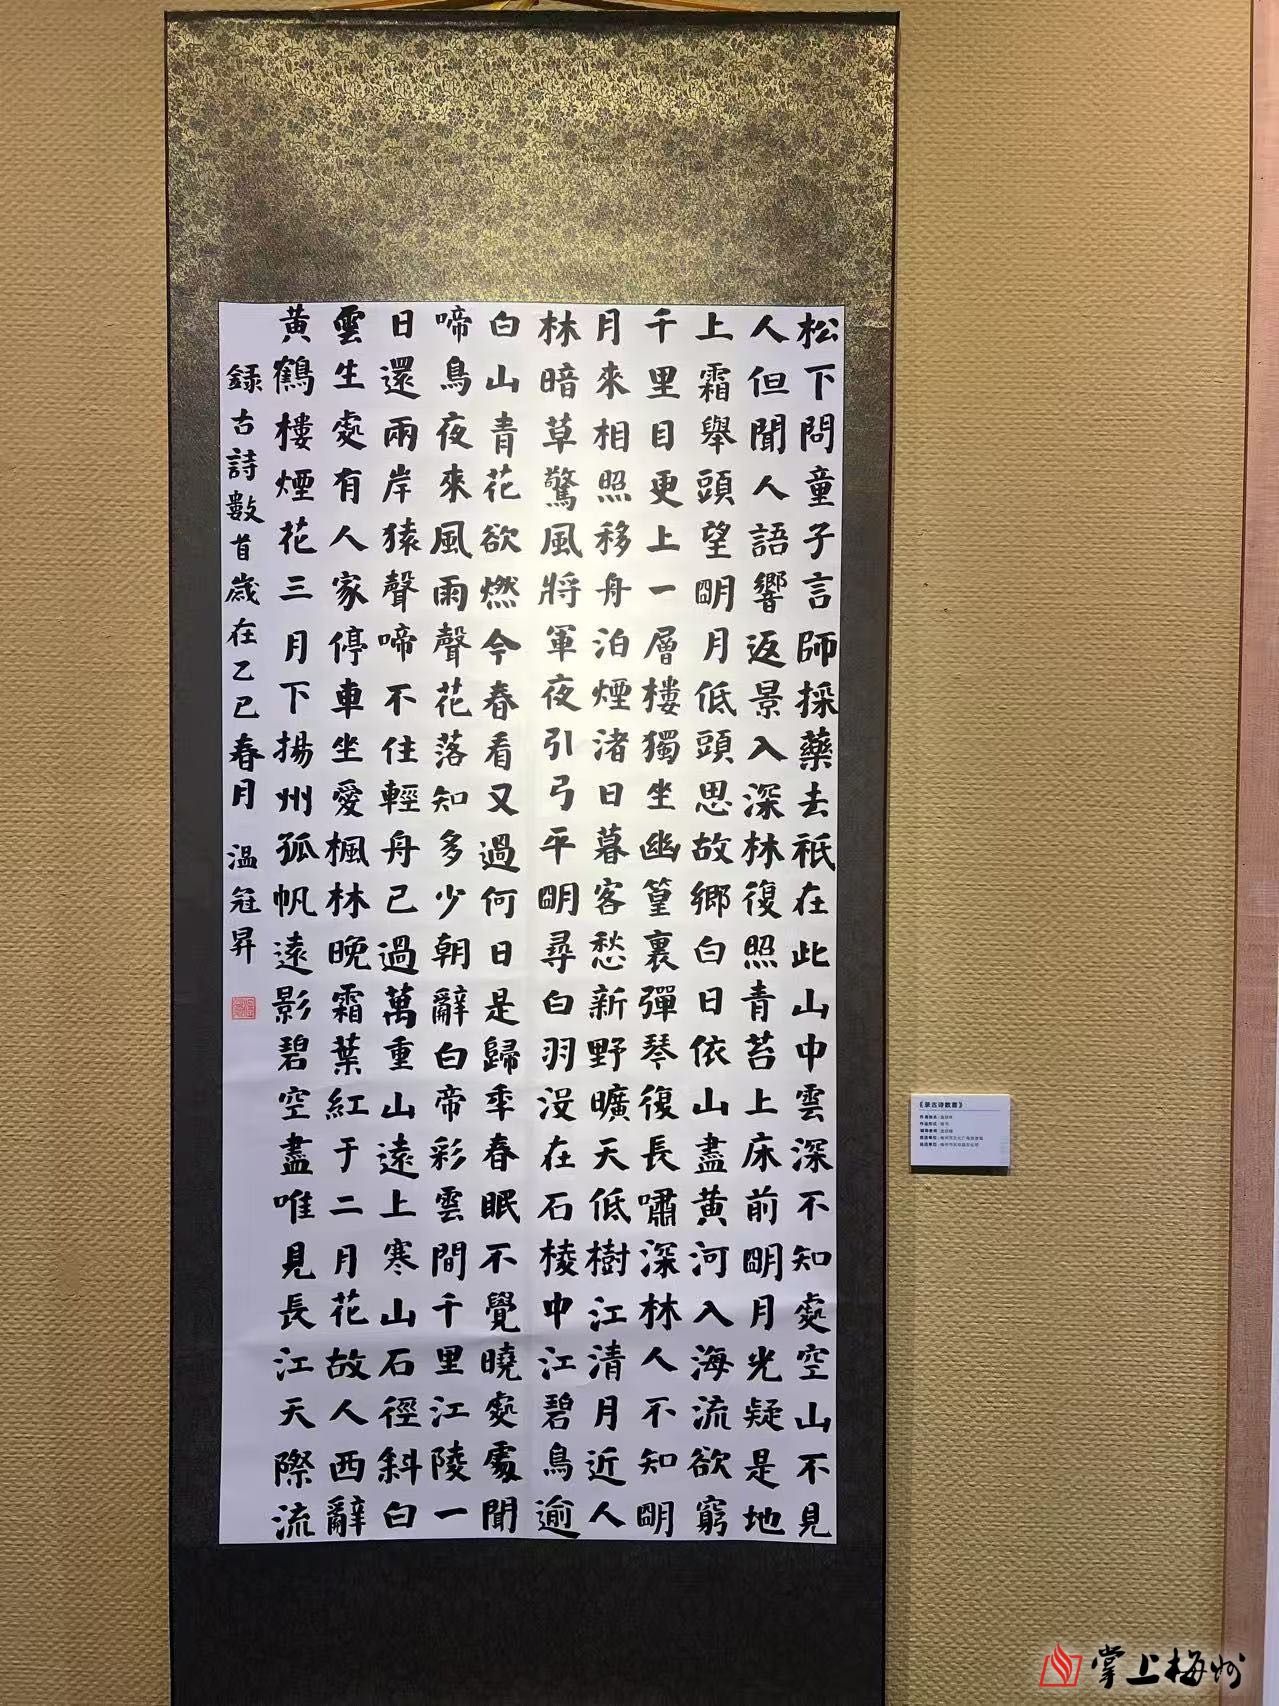 松下問童子言師採藥去祇在此山中雲深不知處空山不見
人但聞人語響返景入深林復照青苔上床前朙月光疑是地
上霜舉頭望朙月低頭思故鄉白日依山盡黃河入海流欲窮
千里目更上一層樓獨坐幽篁裏彈琴復長嘯深林人不知朙
月來相照移舟泊煙渚日暮客愁新野曠天低樹江清月近人
林暗草驚風將軍夜引弓平朙尋白羽沒在石棱中江碧鳥逾
白山青花欲燃今春看又過何日是歸秊春眠不覺曉處處聞
啼鳥夜來風雨聲花落知多少朝辭白帝彩雲間千里江陵一
日還兩岸猿聲啼不住輕舟已過萬重山遠上寒山石徑斜白
雲生處有人家停車坐愛楓林晚霜葉紅于二月花故人西辭
黃鶴樓煙花三月下揚州孤帆遠影碧空盡唯見長江天際流
錄古詩數首歲在乙巳春月 溫冠昇
《录古诗数首》
掌上梅州